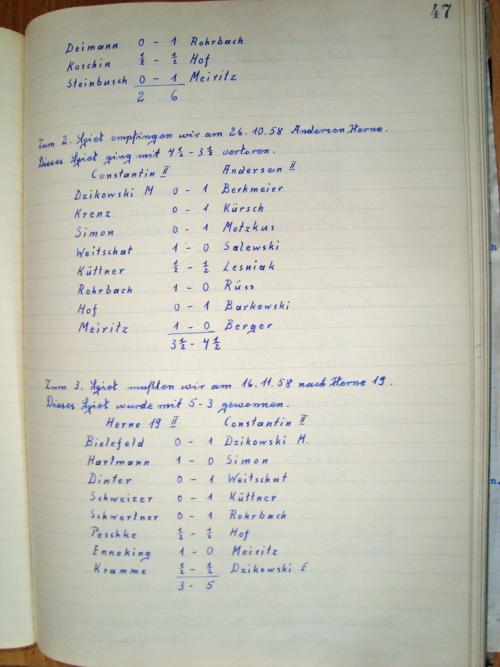 47
Deimann 0 - 1 Rohrbach
Koschin ½ - ½ Hof
Steinbusch 0 - 1 Meiritz
2 6
Zum 2. Spiel empfingen wir am 26.10.58 Anderssen Herne.
Dieses Spiel ging mit 4½ - 3½ verloren.
Constantin II Anderssen II
Dzikowski M 0 - 1 Berkmeier
Krenz 0 - 1 Kürsch
Simon 0 - 1 Motzkus
Weitschat 1 - 0 Salewski
Küttner ½ - ½ Lesniak
Rohrbach 1 - 0 Rüss
Hof 0 - 1 Barkowski
Meiritz 1 - 0 Berger
3½ - 4½
Zum 3. Spiel mußten wir am 16.11.58 nach Herne 19.
Dieses Spiel wurde mit 5 - 3 gewonnen.
Herne 19 II Constantin II
Bielefeld 0 - 1 Dzikowski M.
Hartmann 1 - 0 Simon
Dinter 0 - 1 Weitschat
Schweizer 0 - 1 Küttner
Schwertner 0 - 1 Rohrbach
Peschke ½ - ½ Hof
Enneking 1 - 0 Meiritz
Kramme ½ - ½ Dzikowski E
3 - 5